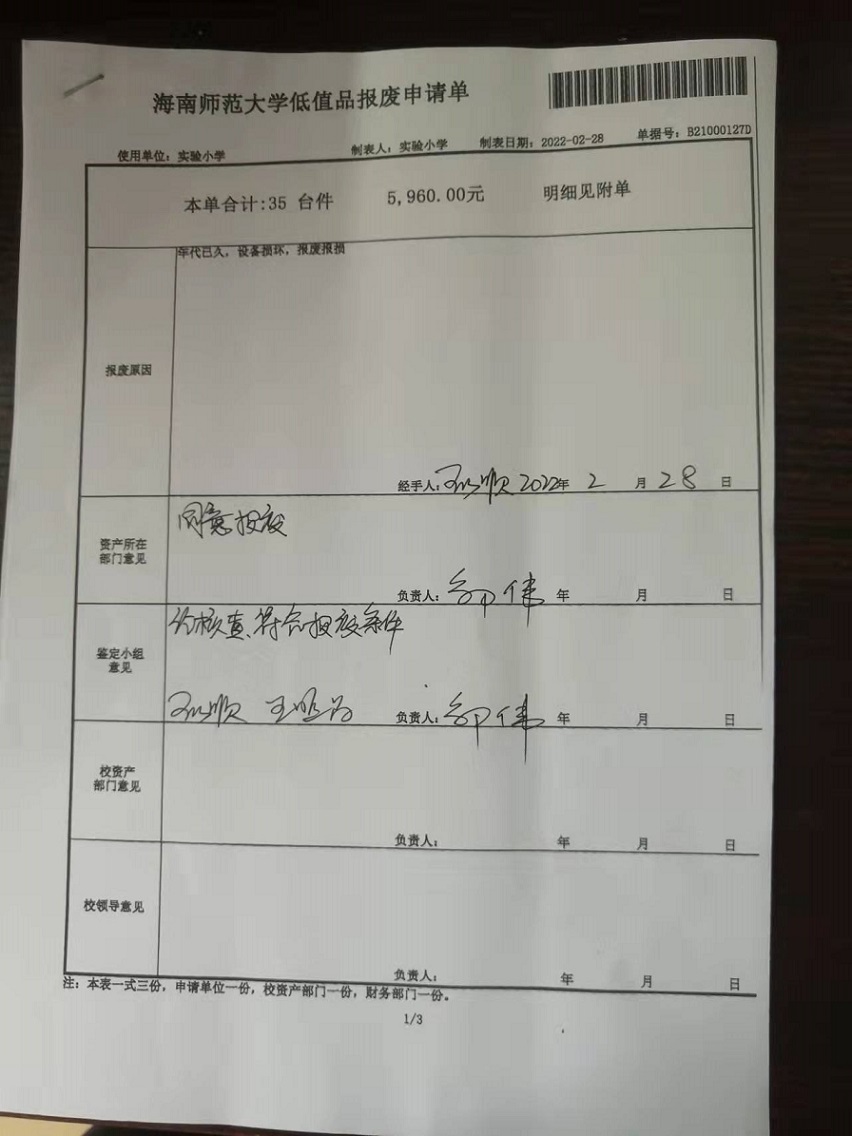 海南师范大学低值品报废申请单
使用单位：实验小学 制表人：实验小学 制表日期：2022-02-28 单据号：B21000127D
本单合计:35 台件 5,960.00元 明细见附单
年代已久，设备损坏，报废报损
报废原因
经手人： 顺 2022年 2 月 28 日
同意报废
资产所在
部门意见
负责人： 伟 年 月 日
符合报废条件
鉴定小组
意见
顺 王 负责人： 伟 年 月 日
校资产
部门意见
负责人： 年 月 日
校领导意见
负责人： 年 月 日
注：本表一式三份，申请单位一份，校资产部门一份，财务部门一份。
1/3